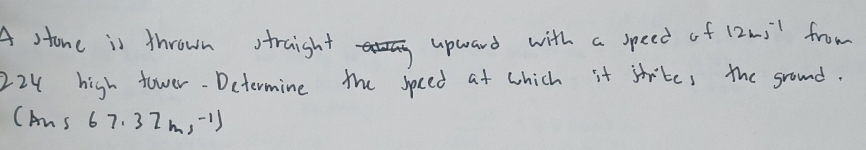 A stone is thrown straight upward with a speed of 12ms⁻¹ from
224 high tower. Determine the speed at which it strikes the ground.
(Ans 67.37ms⁻¹)